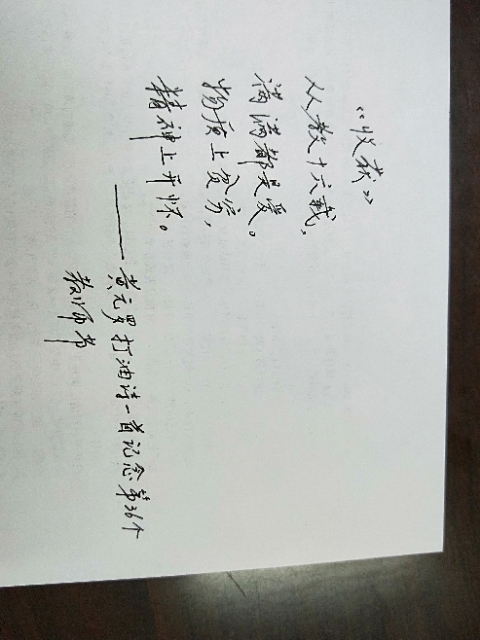 《收获》
从教十六载，
满满都是爱。
物质上贫穷，
精神上开怀。
——黄元罗打油诗一首记念第36个
教师节